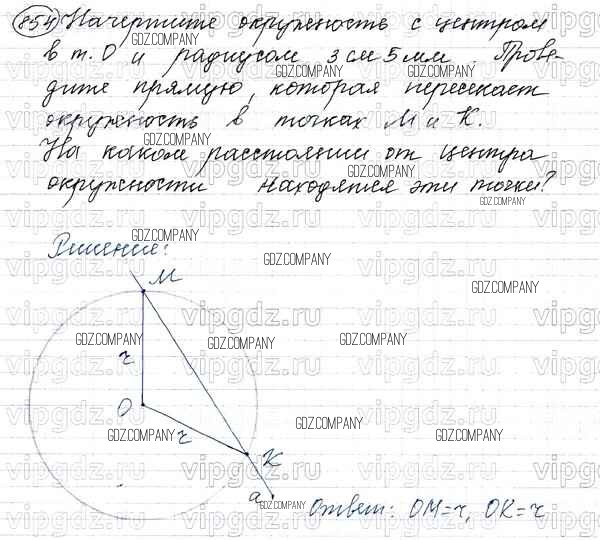 854 Начертите окружность с центром
в т. О и радиусом 3 см 5 мм. Прове-
дите прямую, которая пересекает
окружность в точках М и К.
На каком расстоянии от центра
окружности находятся эти точки?
Решение:
М
r
О
r
К
a
Ответ: ОМ=r, ОК=r
GDZ.COMPANY
vipgdz.ru